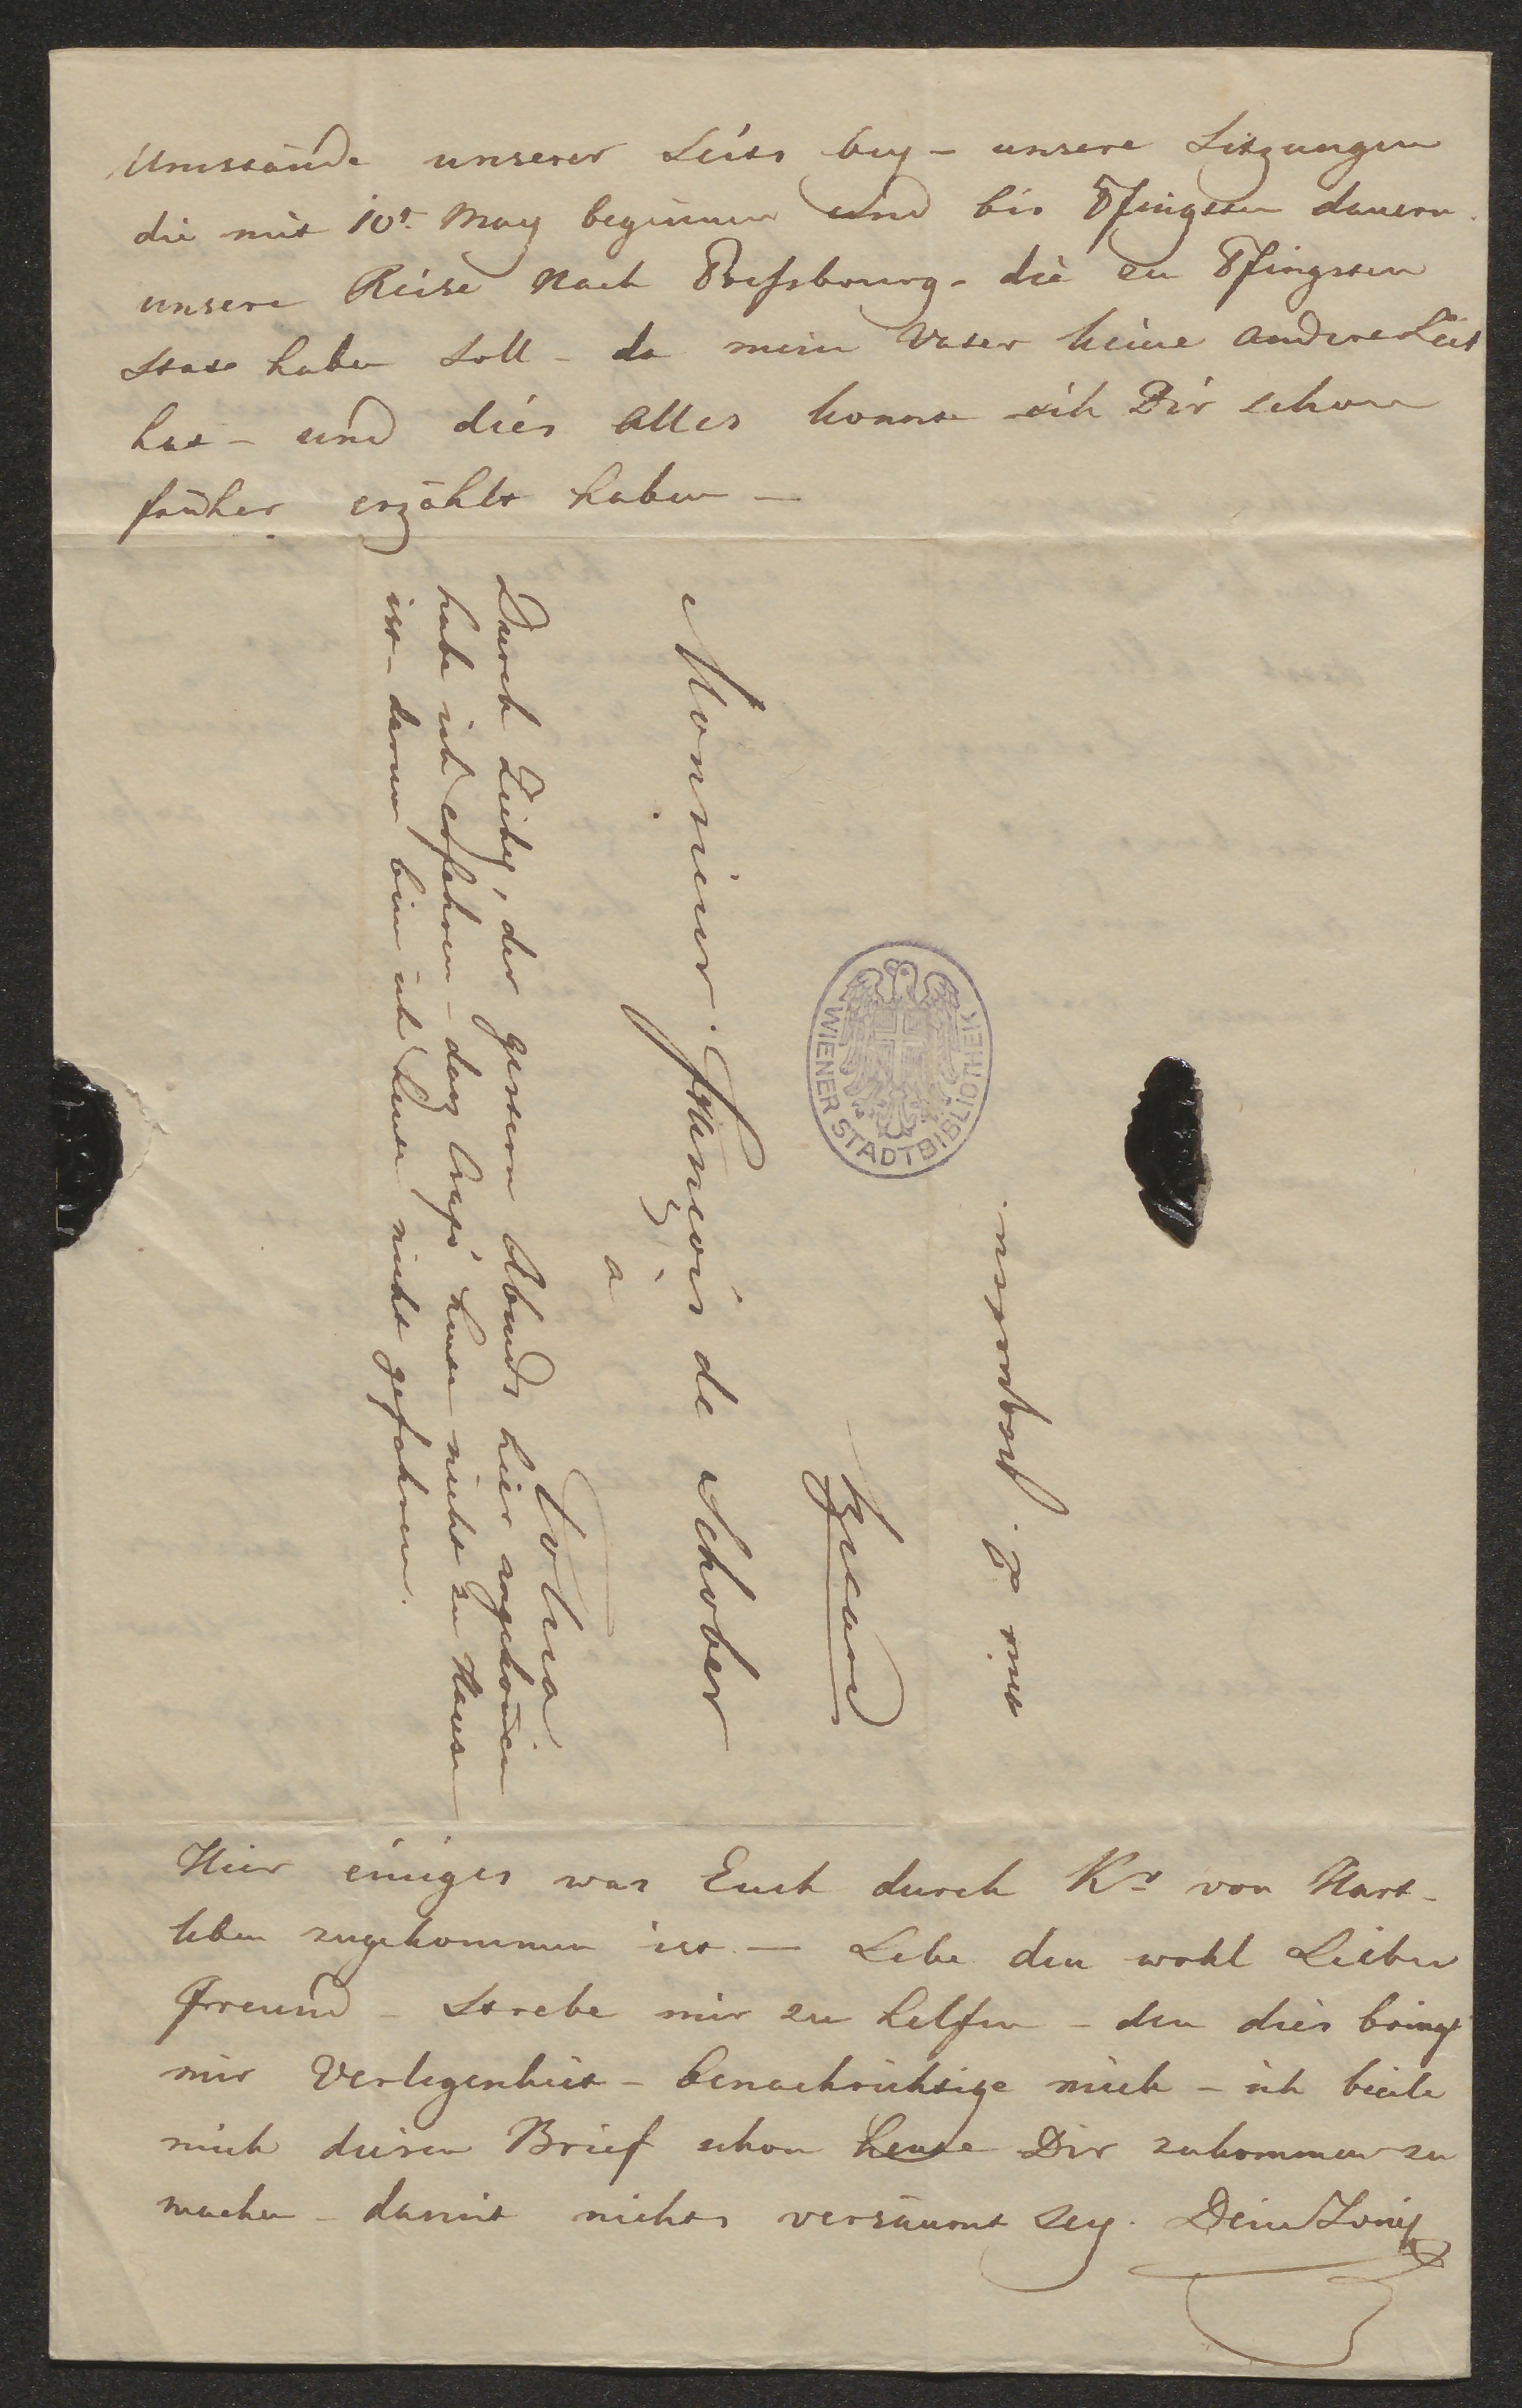 Umstände unserer Seits bey – unsere Sitzungen
die mit 10t. May beginnen und bis Pfingsten dauern.
unsere Reise nach Preßbourg – die zu Pfingsten
Statt haben soll – da mein Vater keine andere Zeit
hat – und dies alles konnte ich Dir schon
früher erzählt haben –
Durch der gestern Abends hier angekom̄en
habe ich erfahren – daß heute nicht zu Hause
ist – darum bin ich heute nicht gefahren.
Monsieur François de Schober
a
Tolna
WIENER STADTBIBLIOTHEK
Hier einiges was Euch durch Hr von Hart-
leben zugekommen ist. – Lebe den wohl Lieber
Freund – Strebe mir zu helfen – den dies bringt
mir Verlegenheit – benachrichtige mich – ich beeile
mich diesen Brief schon heute Dir zukommen zu
machen – damit nichts versäumt sey. Dein